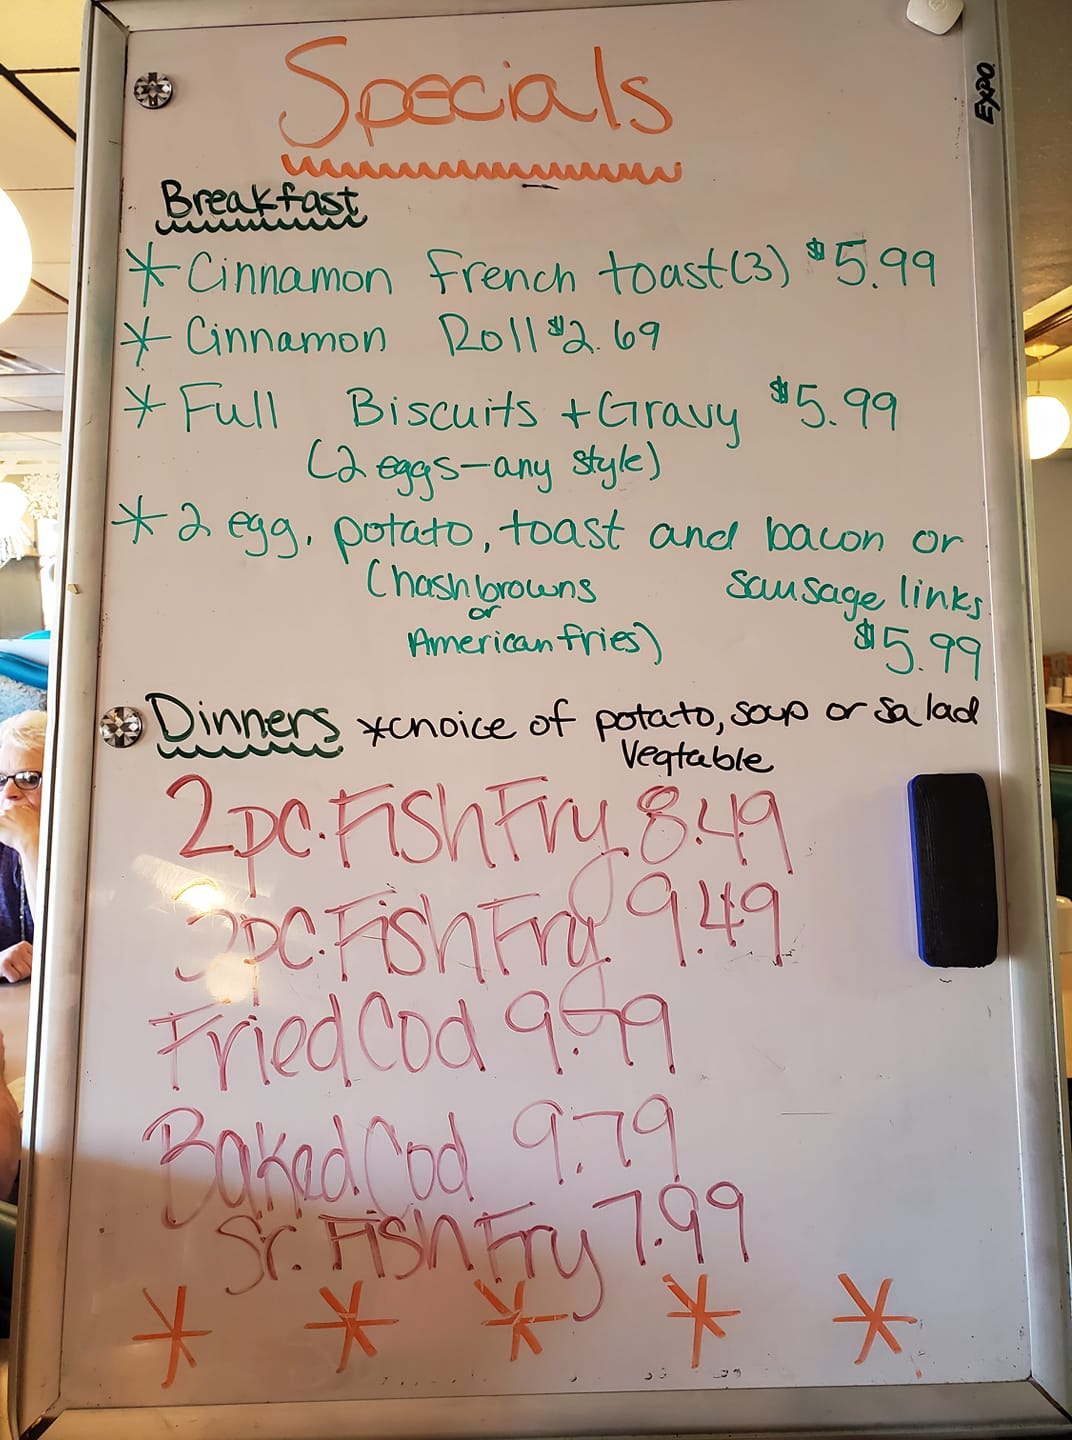 Specials
EXPO
Breakfast
* Cinnamon French toast (3) $5.99
* Cinnamon Roll $2.69
* Full Biscuits + Gravy $5.99
(2 eggs - any style)
* 2 egg, potato, toast and bacon or
(hashbrowns sausage links
or
American fries) $5.99
Dinners *choice of potato, soup or salad
Vegtable
2pc. Fish Fry 8.49
3pc. Fish Fry 9.49
Fried Cod
Baked Cod 9.79
Sr. Fish Fry 7.99
* * * * *